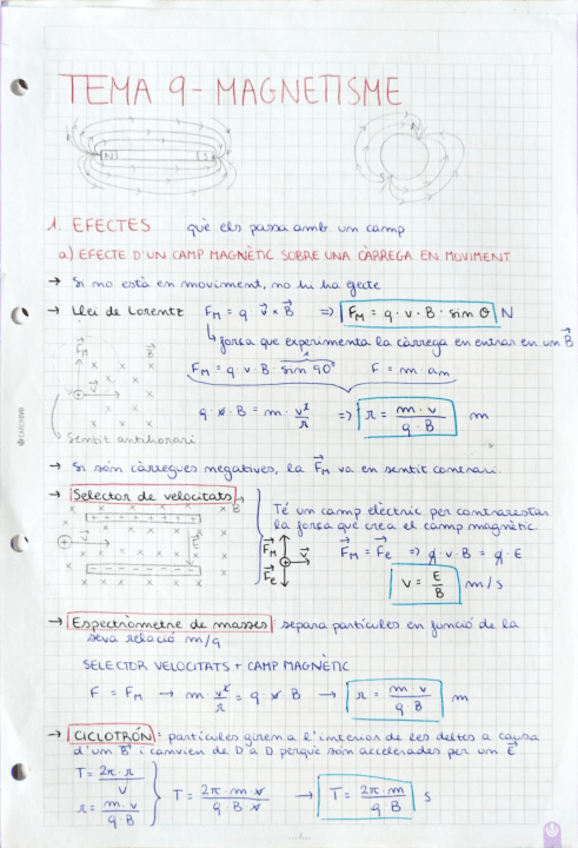 TEMA 9- MAGNETISME
N S
N
S
1. EFECTES què els passa amb un camp
a) EFECTE D'UN CAMP MAGNÈTIC SOBRE UNA CÀRREGA EN MOVIMENT
→ Si no està en moviment, no hi ha efecte
→ Llei de Lorentz F⃗M = q · v⃗ × B⃗ => FM = q · v · B · sin θ N
↳ força que experimenta la càrrega en entrar en un B⃗
F⃗M B⃗
FM = q · v · B · sin 90° F = m · an
1
v⃗
q · v · B = m · v²/r => r = m · v / q · B m
Sentit antihorari
→ Si són càrregues negatives, la F⃗M va en sentit contrari.
→ Selector de velocitats
B⃗
Té un camp elèctric per contrarestar
la força que crea el camp magnètic.
F⃗M v⃗ F⃗e
F⃗M = F⃗e => q · v · B = q · E
v = E/B m/s
→ Espectròmetre de masses: separa partícules en funció de la
seva relació m/q
SELECTOR VELOCITATS + CAMP MAGNÈTIC
F = FM → m · v²/r = q · v · B → r = m · v / q · B m
→ CICLOTRÓN: partícules giren a l'interior de les deltes a causa
d'un B⃗ i canvien de D a D perquè són accelerades per un E⃗
T = 2π · r / v
r = m · v / q · B
T = 2π · m · v / q · B · v → T = 2π · m / q · B s
.../...